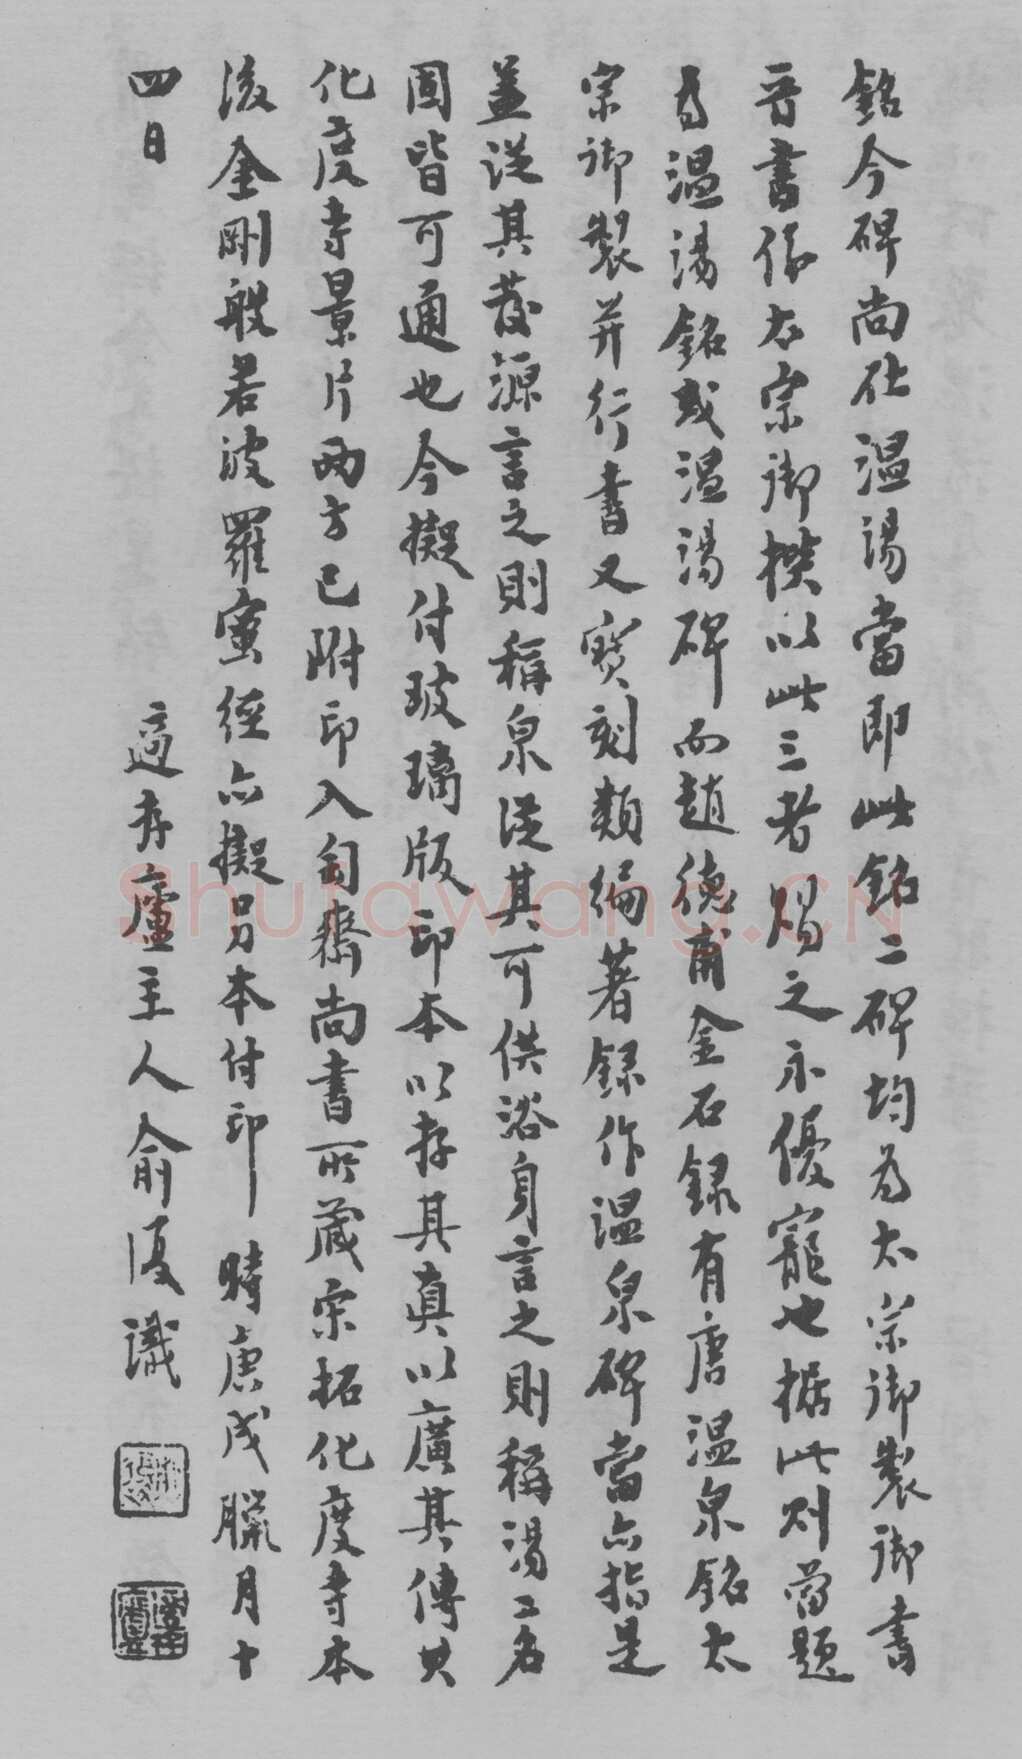 銘今碑尚在温湯當即此銘二碑均為太宗御製御書
晉書係太宗御撰以此三者賜之示優寵也據此則當題
為温湯銘或温湯碑而趙德甫金石録有唐温泉銘太
宗御製并行書又寶刻類編著録作温泉碑當亦指是
蓋從其發源言之則稱泉從其可供浴身言之則稱湯二名
固皆可通也今擬付玻璃版印本以存其真以廣其傳其
化度寺景片兩方已附印入匋齋尚書所藏宋拓化度寺本
後金剛般若波羅蜜經亦擬另本付印 時庚戌臘月十
四日 適存廬主人俞復識
Shufawang.CN